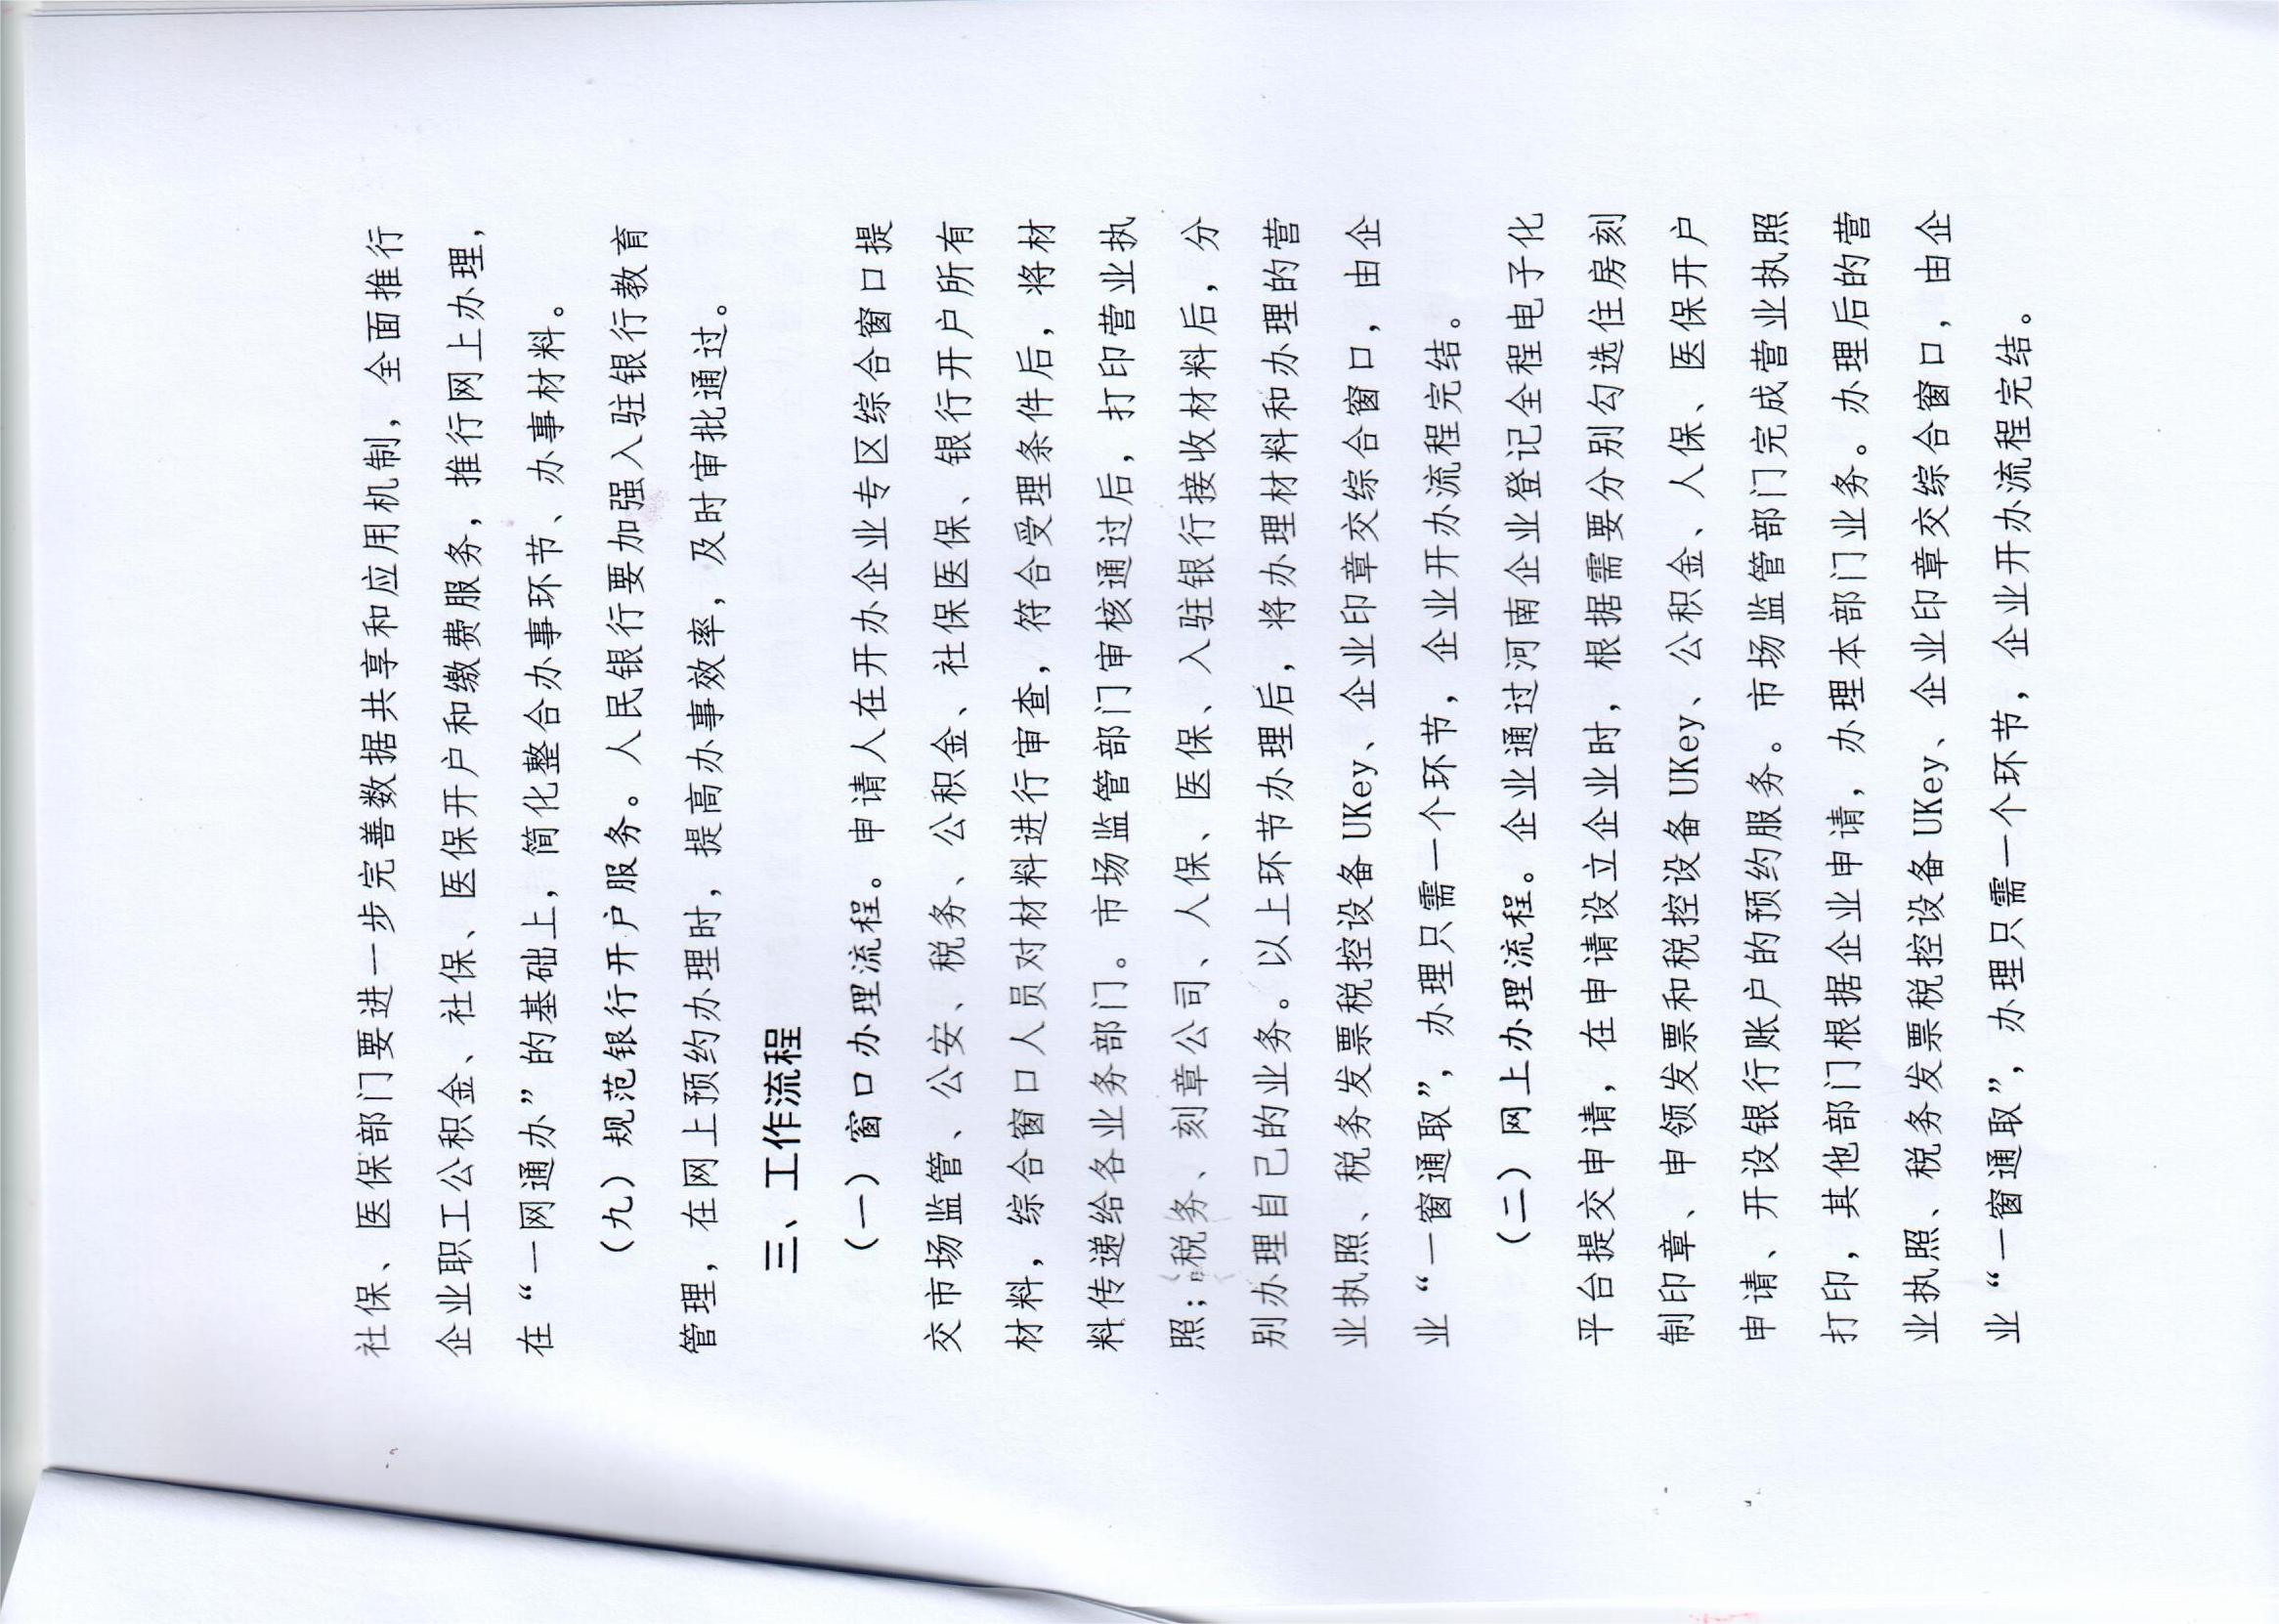 社保、医保部门要进一步完善数据共享和应用机制，全面推行
企业职工公积金、社保、医保开户和缴费服务，推行网上办理，
在“一网通办”的基础上，简化整合办事环节、办事材料。
（九）规范银行开户服务。人民银行要加强入驻银行教育
管理，在网上预约办理时，提高办事效率，及时审批通过。
三、工作流程
（一）窗口办理流程。申请人在开办企业专区综合窗口提
交市场监管、公安、税务、公积金、社保医保、银行开户所有
材料，综合窗口人员对材料进行审查，符合受理条件后，将材
料传递给各业务部门。市场监管部门审核通过后，打印营业执
照；税务、刻章公司、人保、医保、入驻银行接收材料后，分
别办理自己的业务。以上环节办理后，将办理材料和办理的营
业执照、税务发票税控设备UKey、企业印章交综合窗口，由企
业“一窗通取”，办理只需一个环节，企业开办流程完结。
（二）网上办理流程。企业通过河南企业登记全程电子化
平台提交申请，在申请设立企业时，根据需要分别勾选住房刻
制印章、申领发票和税控设备UKey、公积金、人保、医保开户
申请、开设银行账户的预约服务。市场监管部门完成营业执照
打印，其他部门根据企业申请，办理本部门业务。办理后的营
业执照、税务发票税控设备UKey、企业印章交综合窗口，由企
业“一窗通取”，办理只需一个环节，企业开办流程完结。